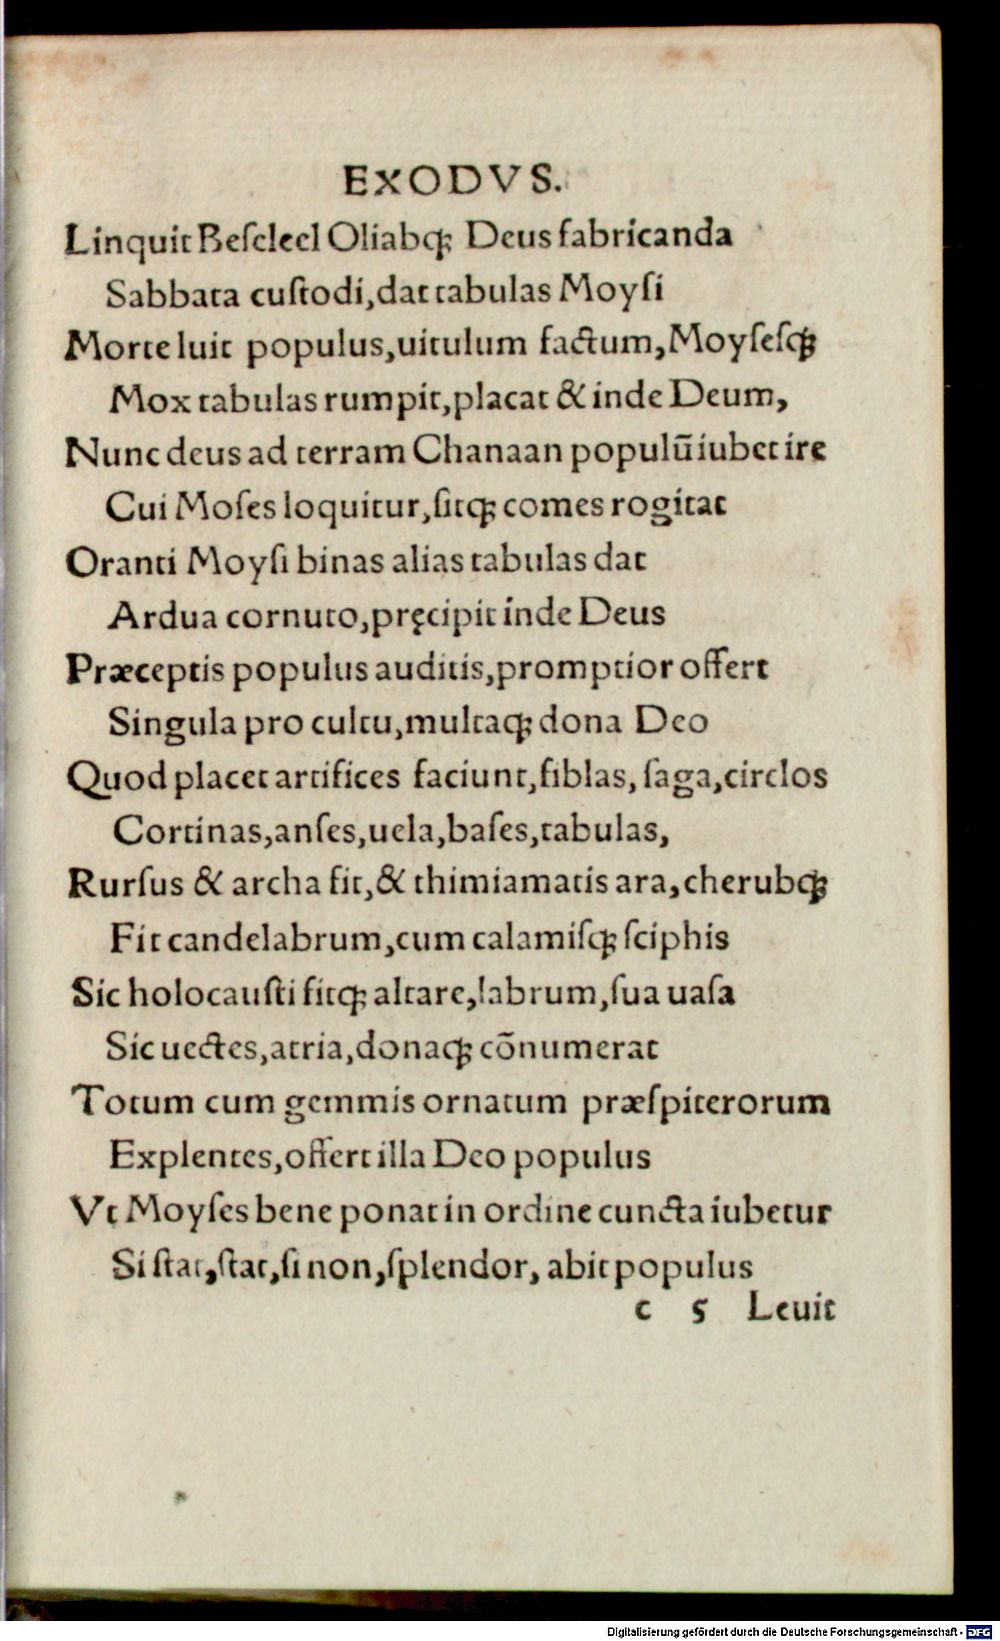 EXODVS.
Linquit Beſeleel Oliabqꝫ Deus fabricanda
Sabbata cuſtodi,dat tabulas Moyſi
Morte luit populus,uitulum factum,Moyſeſqꝫ
Mox tabulas rumpit,placat & inde Deum,
Nunc deus ad terram Chanaan populū iubet ire
Cui Moſes loquitur,ſitqꝫ comes rogitat
Oranti Moyſi binas alias tabulas dat
Ardua cornuto,pręcipit inde Deus
Præceptis populus auditis,promptior offert
Singula pro cultu,multaqꝫ dona Deo
Quod placet artifices faciunt,fiblas, ſaga,circlos
Cortinas,anſes,uela,baſes,tabulas,
Rurſus & archa fit,& thimiamatis ara,cherubqꝫ
Fit candelabrum,cum calamiſqꝫ ſciphis
Sic holocauſti fitqꝫ altare,labrum,ſua uaſa
Sic uectes,atria,donaqꝫ cōnumerat
Totum cum gemmis ornatum præſpiterorum
Explentes,offert illa Deo populus
Vt Moyſes bene ponat in ordine cuncta iubetur
Si ſtat,ſtat,ſi non,ſplendor, abit populus
c 5 Leuit
Digitalisierung gefördert durch die Deutsche Forschungsgemeinschaft - DFG